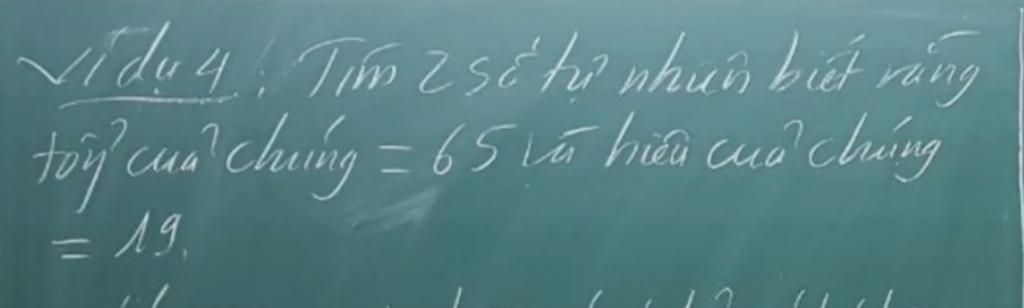 Ví dụ 4: Tìm 2 số tự nhiên biết rằng
tổng của chúng = 65 và hiệu của chúng
= 19.